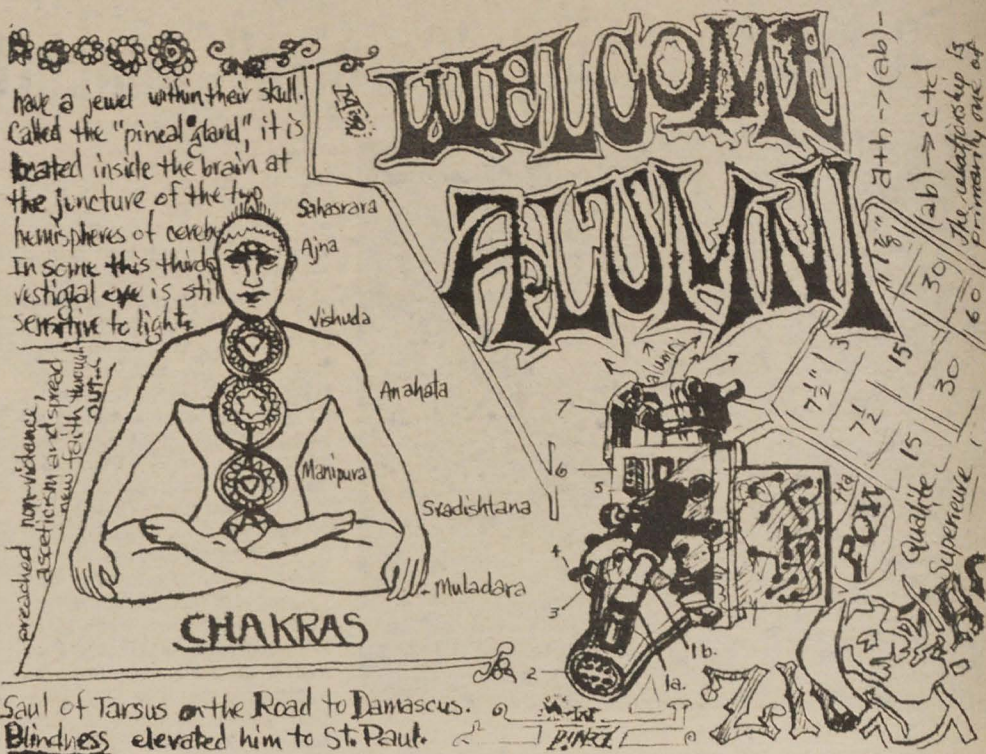 have a jewel within their skull.
Called the "pineal gland", it is
located inside the brain at
the juncture of the two
hemispheres of cerebe
In some this third
vestigial eye is still
sensitive to light.
WELCOME
ALUMNI
Sahasrara
Ajna
Vishuda
Anahata
Manipura
Svadishtana
Muladara
CHAKRAS
preached non-violence,
asceticism and spread
new faith through
out...
Saul of Tarsus on the Road to Damascus.
Blindness elevated him to St. Paul.
a+b->(ab)-
(ab)->c+d
The relationship is
primarily one of
alumni
7
6
5
4
3
2
1a.
1b.
1
1 7/8"
30
60
7 1/2"
15
30
7 1/2
15
POW
Qualité
Superieure